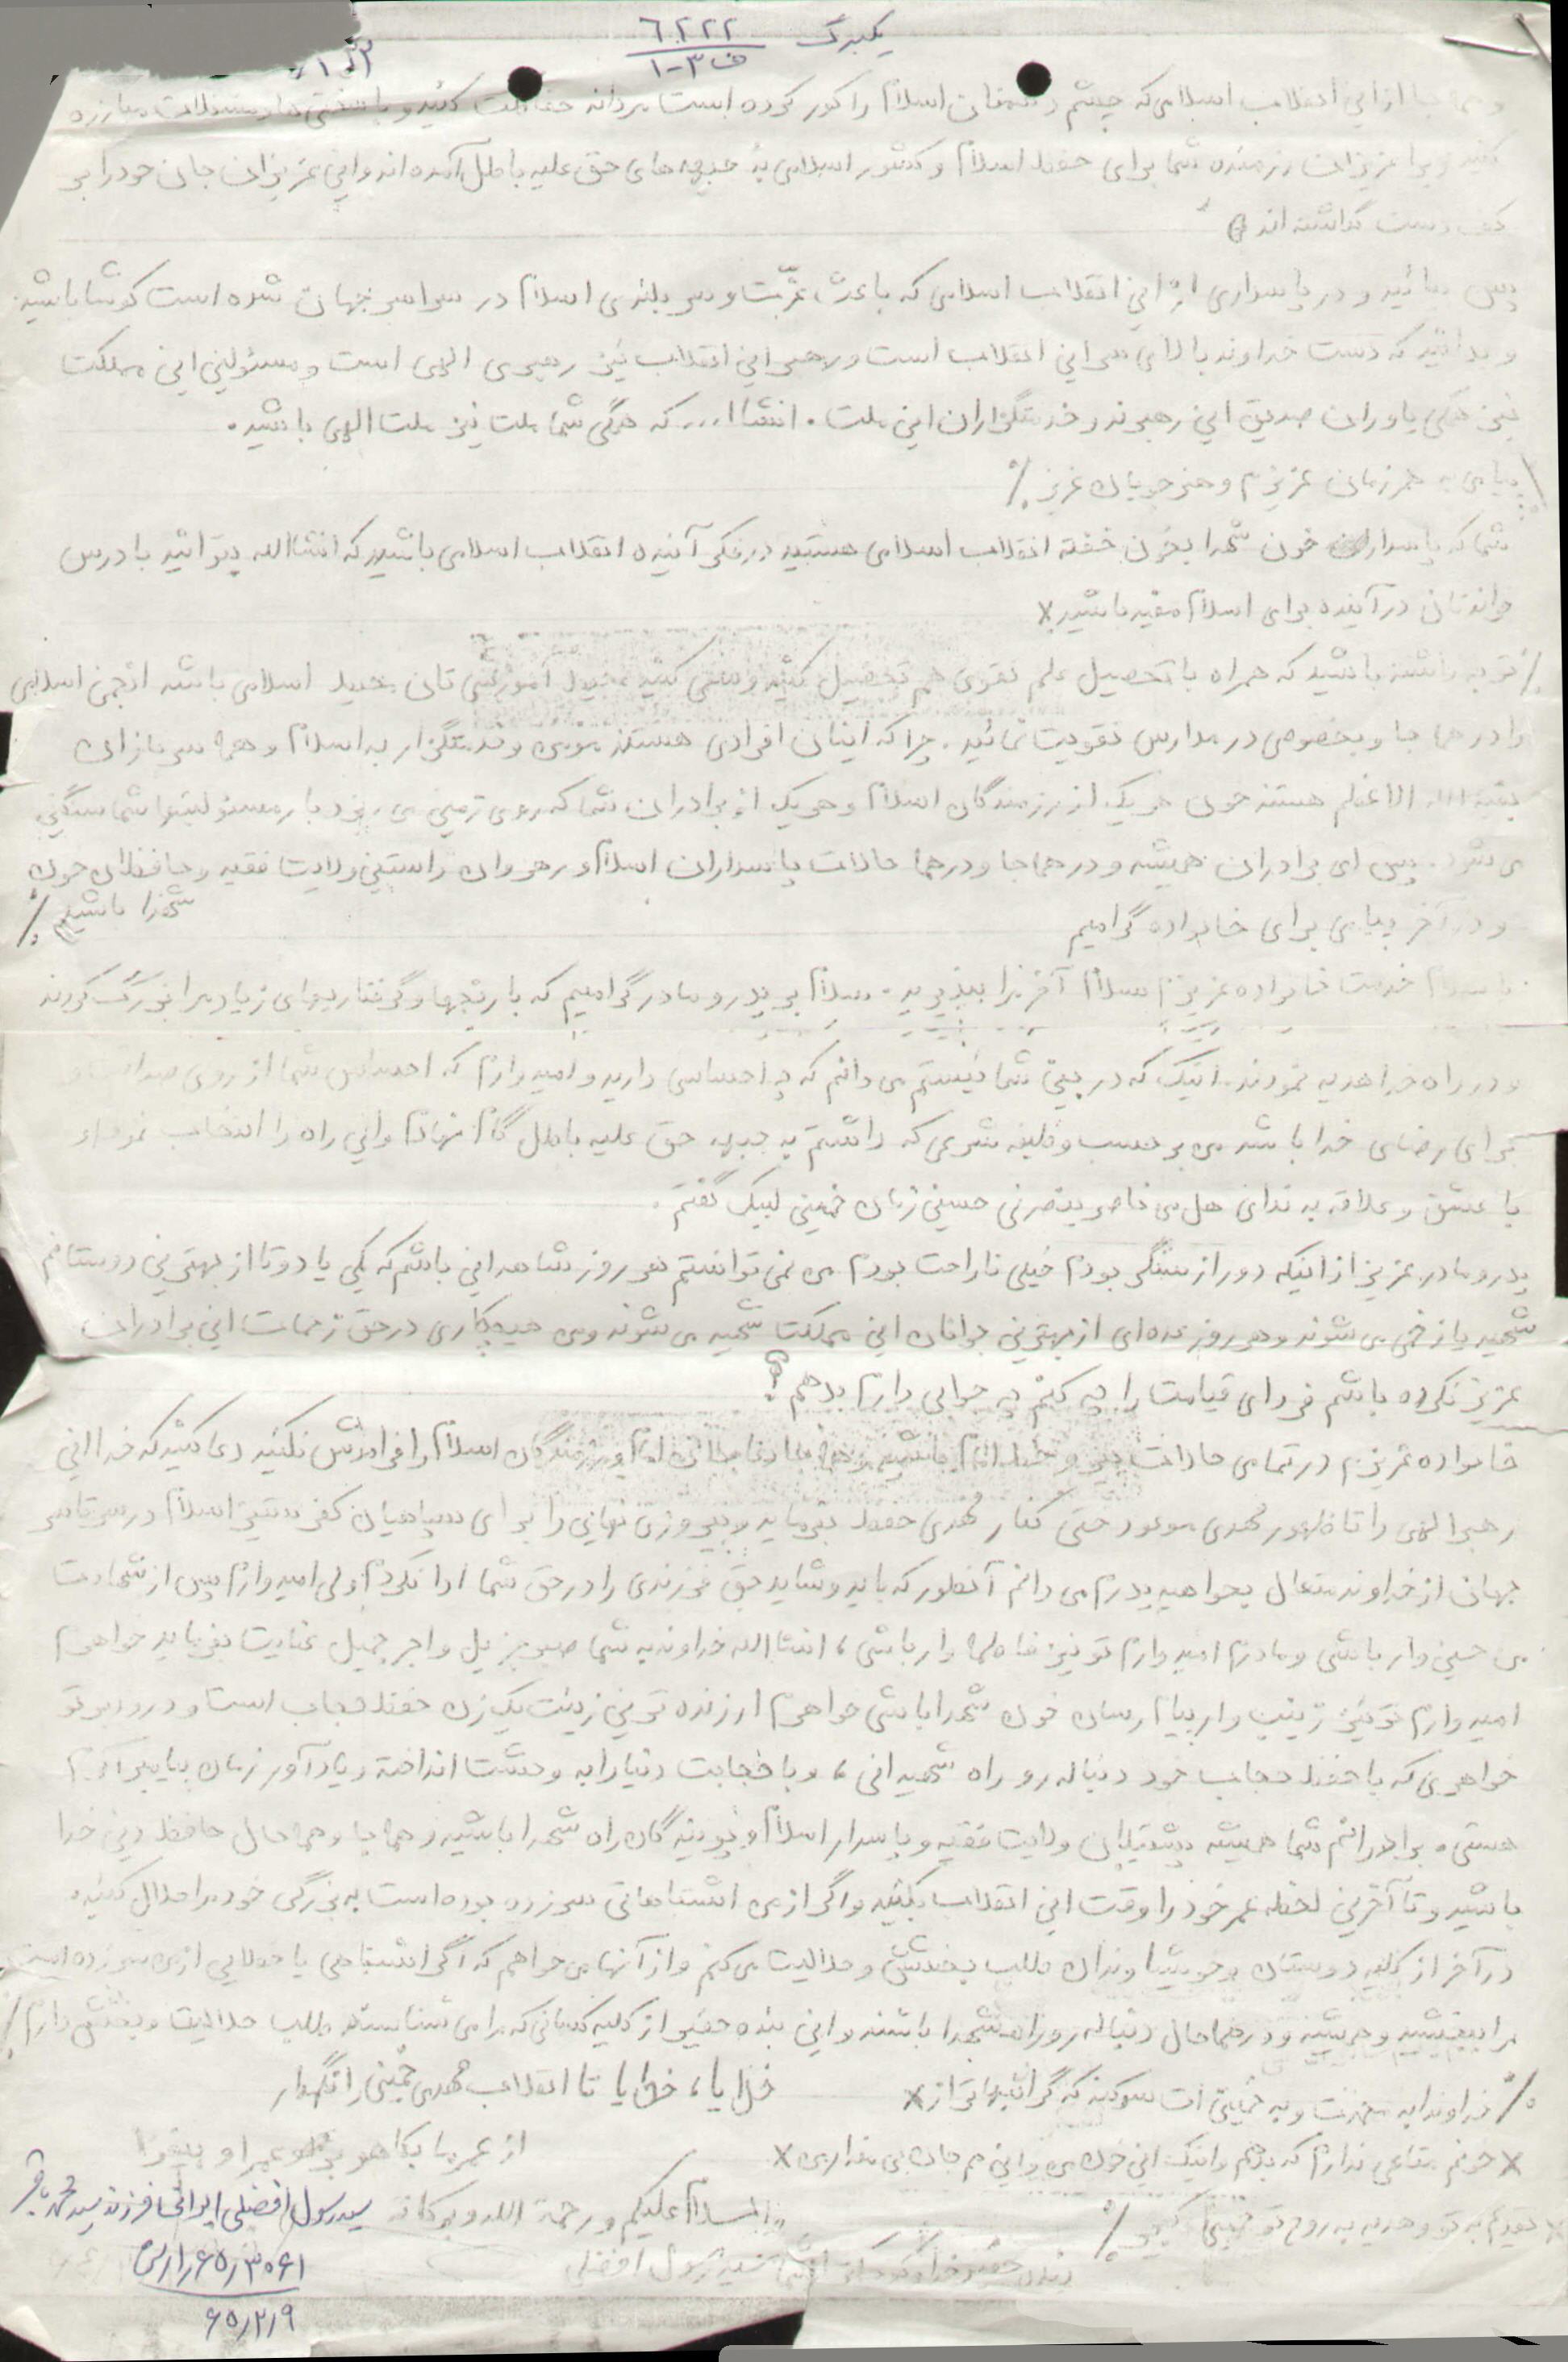 یکبرگ ۶۲۲۲
ف ۳-۱
و همه جا از این انقلاب اسلامی که چشم دشمنان اسلام را کور کرده است مردانه حفاظت کنید و با سختی ها و مشکلات مبارزه
کنید زیرا عزیزان رزمنده شما برای حفظ اسلام و کشور اسلامی به جبهه های حق علیه باطل آمده اند و این عزیزان جان خود را بر
کف دست گذاشته اند
پس بیائید و در پاسداری از این انقلاب اسلامی که باعث عزت و سربلندی اسلام در سراسر جهان شده است کوشا باشید
و بدانید که دست خداوند بالای سر این انقلاب است و رهبر این انقلاب نیز رهبری الهی است و مسئولین این مملکت
نیز همگی یاوران صدیق این رهبرند و خدمتگزاران این ملت . انشاا... که همگی شما ملت نیز ملت الهی باشید .
پیامی به همرزمان عزیزم و هنرجویان عزیز ٪
شما که پاسداران خون شهدا بخون خفته انقلاب اسلامی هستید در فکر آینده انقلاب اسلامی باشید که انشاالله بتوانید با درس
خواندنتان در آینده برای اسلام مفید باشید x
توجه داشته باشید که همراه با تحصیل علم تقوی هم تحصیل کنید و سعی کنید محیط آموزشی تان محیط اسلامی باشد انجمن اسلامی
را در هما جا و بخصوص در مدارس تقویت نمائید . چرا که اینان افرادی هستند مومن و خدمتگزار به اسلام و هما سربازان
بقیه ا... الاعظم هستند چون هر یک از رزمندگان اسلام و هر یک از برادران شما که روی زمین می ریزد بار مسئولیتها شما سنگین
می شود . پس ای برادران همیشه و در هما جا و در هما حالات پاسداران اسلام و رهروان راستین ولایت فقیه و حافظان خون
شهدا باشید ٪
و در آخر پیامی برای خانواده گرامیم
با سلام خدمت خانواده عزیزم سلام آخر مرا بپذیرید . سلام بر پدر و مادر گرامیم که با رنجها و گرفتاریهای زیاد مرا بزرگ کردند
و در راه خدا هدیه نمودند . اینک که در بین شما نیستم می دانم که چه احساسی دارید و امیدوارم که احساس شما از روی صداقت و
برای رضای خدا باشد من بر حسب وظیفه شرعی که داشتم به جبهه حق علیه باطل گام نهادم و این راه را انتخاب نمودم و
با عشق و علاقه به ندای هل من ناصر ینصرنی حسین زمان خمینی لبیک گفتم .
پدر و مادر عزیز از اینکه دور از سنگر بودم خیلی ناراحت بودم من نمی توانستم هر روز شاهد این باشم که یکی یا دوتا از بهترین دوستانم
شهید یا زخمی می شوند و هر روز عده ای از بهترین جوانان این مملکت شهید می شوند و من هیچکاری در حق زحمات این برادران
عزیز نکرده باشم فردای قیامت را چه کنم چه جوابی دارم بدهم ؟
خانواده عزیزم در تمامی حالات پیرو خط امام باشید و دعا امام و رزمندگان اسلام را فراموش نکنید دعا کنید که خدا این
رهبر الهی را تا ظهور مهدی موعود حتی کنار مهدی حفظ بفرماید و پیروزی نهایی را برای سپاهیان کفر ستیز اسلام در سرتاسر
جهان از خداوند متعال بخواهید پدرم می دانم آنطور که باید و شاید حق فرزندی را در حق شما ادا نکردم ولی امیدوارم پس از شهادت
من حسین وار باشی و مادرم امیدوارم تو نیز فاطمه وار باشی ، انشاالله خداوند به شما صبر جزیل و اجر جمیل عنایت بفرماید خواهرم
امیدوارم تو نیز زینب وار پیام رسان خون شهدا باشی خواهرم ارزنده ترین زینت یک زن حفظ حجاب است و درود بر تو
خواهرم که با حفظ حجاب خود دنباله رو راه شهیدانی ، و با حجابت دنیا را به وحشت انداخته و یادآور زمان پیامبر اکرم
هستی . برادرانم شما همیشه پشتیبان ولایت فقیه و پاسدار اسلام و پویندگان راه شهدا باشید و هما جا و هما حال حافظ دین خدا
باشید و تا آخرین لحظه عمر خود را وقت این انقلاب بکنید و اگر از من اشتباهاتی سرزده بوده است به بزرگی خود مرا حلال کنید .
در آخر از کلیه دوستان و خویشاوندان طلب بخشش و حلالیت می کنم و از آنها می خواهم که اگر اشتباهی یا خطایی از من سرزده است
مرا ببخشید و در هما حال دنباله رو راه شهدا باشند و این بنده حقیر از کلیه کسانی که مرا می شناسند طلب حلالیت و بخشش دارم ٪
٪ خداوندا به محمدت و به خمینی ات سوگند که گرانبهاتر از x
خدایا ، خدایا تا انقلاب مهدی خمینی را نگهدار
x خونم متاعی ندارم که بدهم و اینک این خون من و این هم جان بی مقدار من x
از عمر ما بکاه و بر عمر او بیفزا
x تقدیم به تو و هدیه به روح تو خمینی کبیر ٪
والسلام علیکم و رحمة الله و برکاته
سید رسول افضلی
سید رسول افضلی ایرانی فرزند سید محمد باقر
۶۵/۲/۹